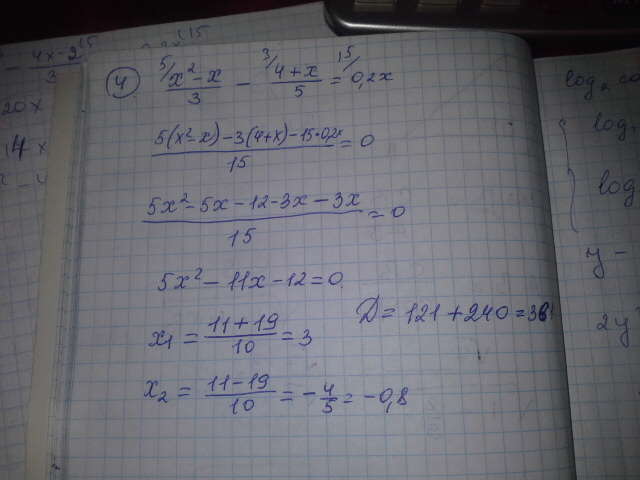 4
5/ x² - x / 3 - 3/ 4 + x / 5 = 15/ 0,2x
5(x² - x) - 3(4 + x) - 15·0,2x / 15 = 0
5x² - 5x - 12 - 3x - 3x / 15 = 0
5x² - 11x - 12 = 0
D = 121 + 240 = 361
x₁ = 11 + 19 / 10 = 3
x₂ = 11 - 19 / 10 = - 4/5 = -0,8
20x
log
log
2y